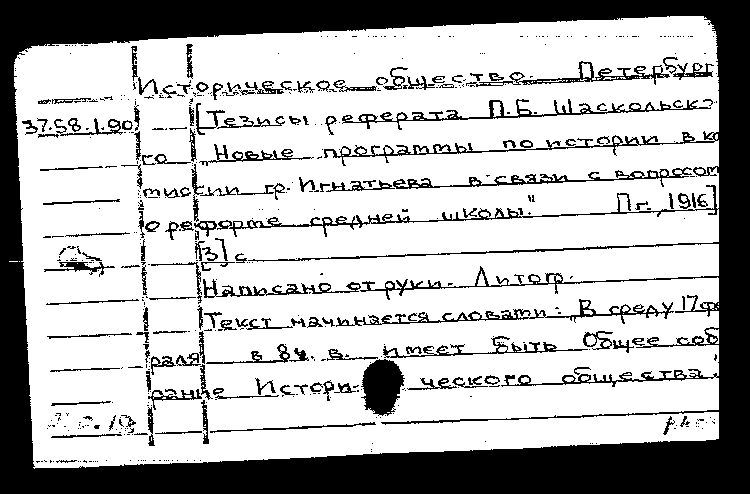 Историческое общество. Петербург
37.58.1.90
[Тезисы реферата П.Б. Шаскольско
го „Новые программы по истории в ко
миссии гр. Игнатьева в связи с вопросом
о реформе средней школы." Пг., 1916]
[3] с.
Написано от руки. Литогр.
Текст начинается словами: „В среду 17 фе
раля в 8 ч. в. имеет быть Общее соб
рание Истори- ческого общества".